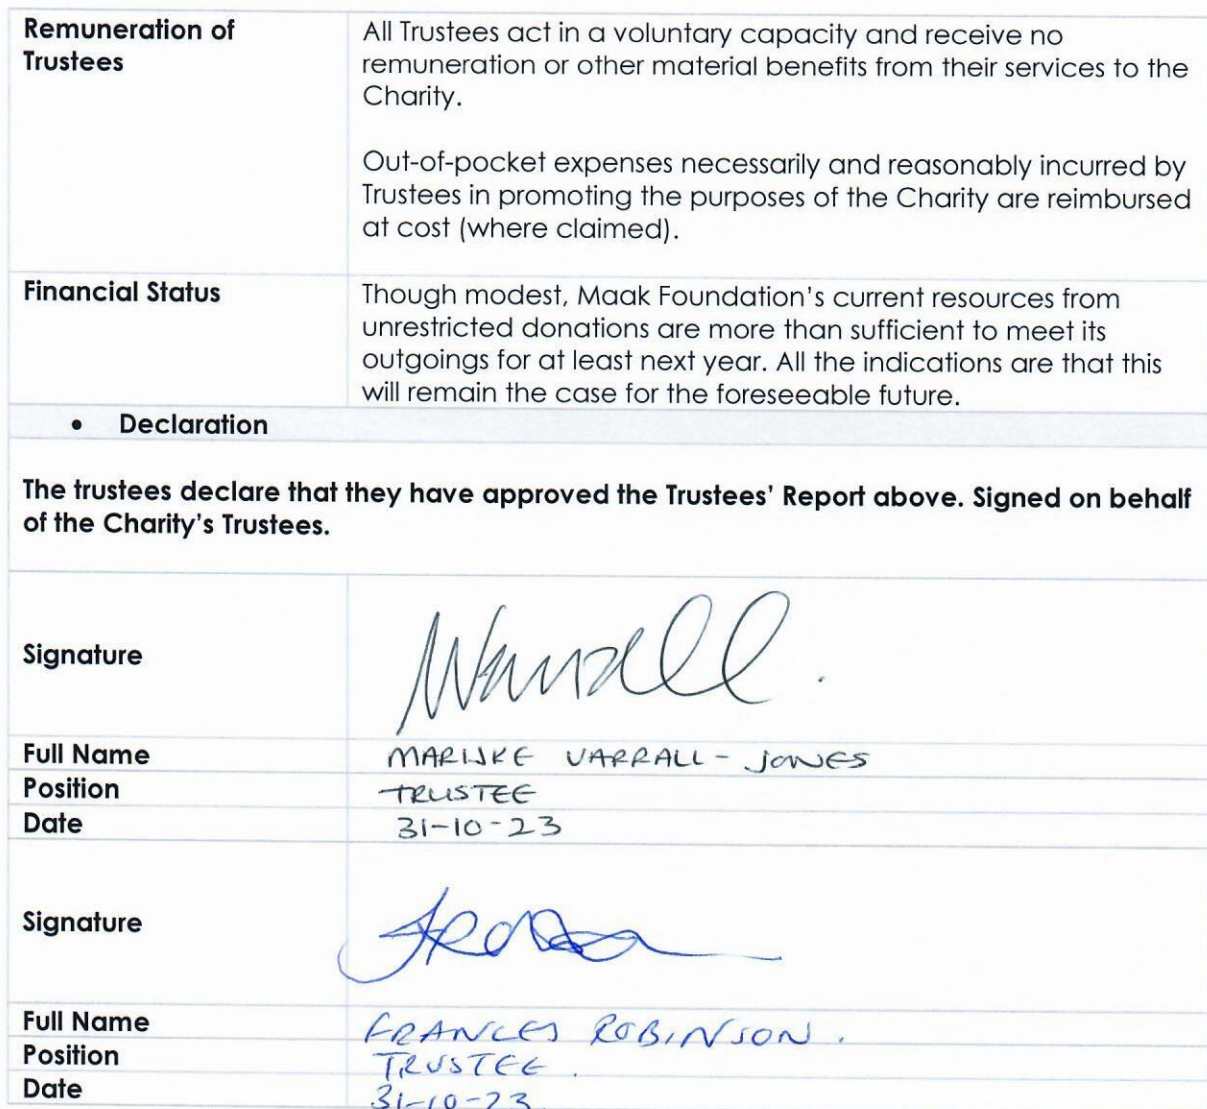 Remuneration of
Trustees
All Trustees act in a voluntary capacity and receive no
remuneration or other material benefits from their services to the
Charity.
Out-of-pocket expenses necessarily and reasonably incurred by
Trustees in promoting the purposes of the Charity are reimbursed
at cost (where claimed).
Financial Status
Though modest, Maak Foundation's current resources from
unrestricted donations are more than sufficient to meet its
outgoings for at least next year. All the indications are that this
will remain the case for the foreseeable future.
• Declaration
The trustees declare that they have approved the Trustees' Report above. Signed on behalf
of the Charity's Trustees.
Signature
Full Name MARIJKE VARRALL-JONES
Position TRUSTEE
Date 31-10-23
Signature
Full Name FRANCES ROBINSON.
Position TRUSTEE.
Date 31-10-23